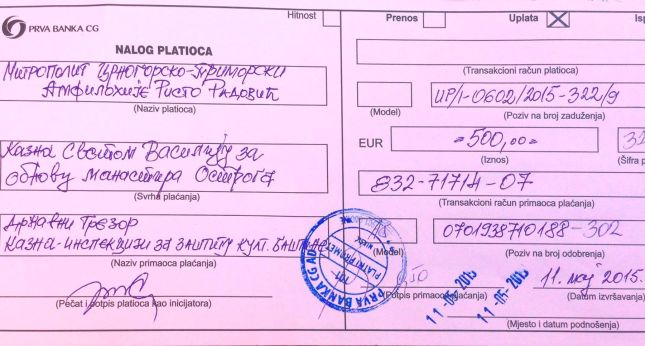 PRVA BANKA CG
Hitnost
NALOG PLATIOCA
Митрополит Црногорско-Приморски
Амфилохије Ристо Радовић
(Naziv platioca)
Казна Светом Василију за
обнову манастира Острога
(Svrha plaćanja)
Државни Трезор
Казна-инспекцији за заштиту култ. баштине
(Naziv primaoca plaćanja)
(Pečat i potpis platioca kao inicijatora)
Prenos
Uplata
(Transakcioni račun platioca)
UP/I-0602/2015-322/9
(Model)
(Poziv na broj zaduženja)
EUR
=500,00=
(Iznos)
(Šifra p
832-71714-07
(Transakcioni račun primaoca plaćanja)
0701938710188-302
(Model)
(Poziv na broj odobrenja)
PLATNI PROMET
PRVA BANKA CG AD
11. мај 2015.
(Potpis primaoca plaćanja)
(Datum izvršavanja)
11-05-2015
11-05-2015
(Mjesto i datum podnošenja)